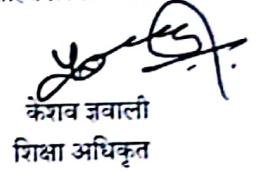 केशव ज्ञवाली
शिक्षा अधिकृत